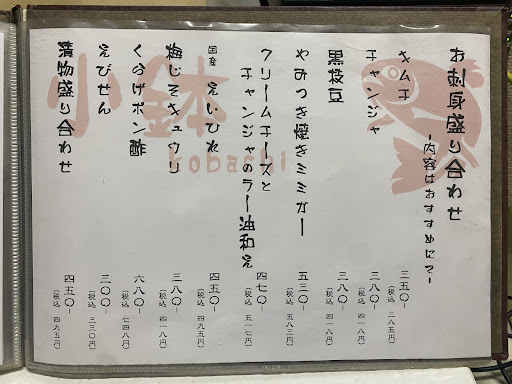 小鉢
kobachi
お刺身盛り合わせ
-内容はおすすめにて-
キムチ 三五〇-
(税込 三八五円)
チャンジャ 三八〇-
(税込 四一八円)
黒枝豆 三八〇-
(税込 四一八円)
やみつき焼きミミガー 五三〇-
(税込 五八三円)
クリームチーズと
チャンジャのラー油和え 四七〇-
(税込 五一七円)
国産 えいひれ 四五〇-
(税込 四九五円)
梅じそキュウリ 三八〇-
(税込 四一八円)
くらげポン酢 六八〇-
(税込 七四八円)
えびせん 三〇〇-
(税込 三三〇円)
漬物盛り合わせ 四五〇-
(税込 四九五円)